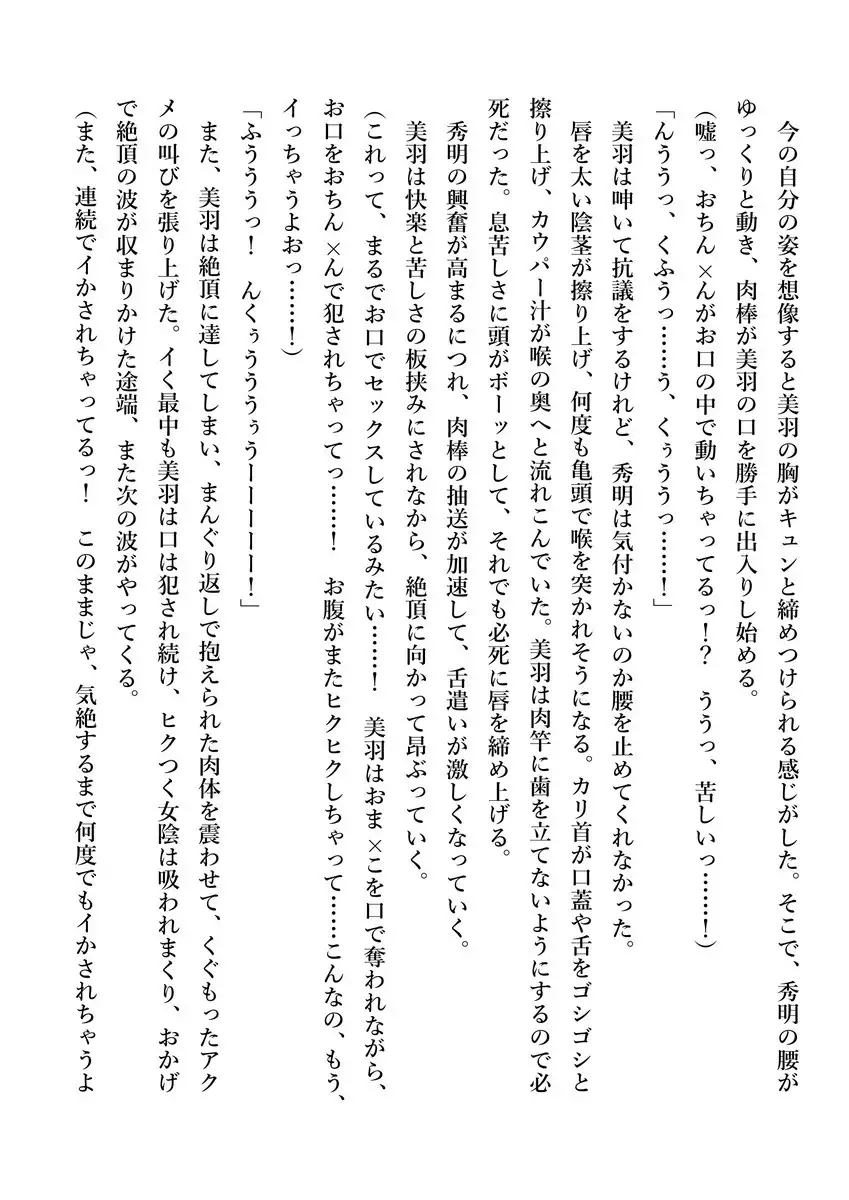 今の自分の姿を想像すると美羽の胸がキュンと締めつけられる感じがした。そこで、秀明の腰が
ゆっくりと動き、肉棒が美羽の口を勝手に出入りし始める。
（嘘っ、おちん×んがお口の中で動いちゃってるっ！？　ううっ、苦しいっ……！）
「んううっ、くふうっ……う、くぅううっ……！」
　美羽は呻いて抗議をするけれど、秀明は気付かないのか腰を止めてくれなかった。
　唇を太い陰茎が擦り上げ、何度も亀頭で喉を突かれそうになる。カリ首が口蓋や舌をゴシゴシと
擦り上げ、カウパー汁が喉の奥へと流れこんでいた。美羽は肉竿に歯を立てないようにするので必
死だった。息苦しさに頭がボーッとして、それでも必死に唇を締め上げる。
　秀明の興奮が高まるにつれ、肉棒の抽送が加速して、舌遣いが激しくなっていく。
　美羽は快楽と苦しさの板挟みにされなから、絶頂に向かって昂ぶっていく。
（これって、まるでお口でセックスしているみたい……！　美羽はおま×こを口で奪われながら、
お口をおちん×んで犯されちゃってっ……！　お腹がまたヒクヒクしちゃって……こんなの、もう、
イっちゃうよおっ……！）
「ふうううっ！　んくぅうううぅうーーーーー！」
　また、美羽は絶頂に達してしまい、まんぐり返しで抱えられた肉体を震わせて、くぐもったアク
メの叫びを張り上げた。イく最中も美羽は口は犯され続け、ヒクつく女陰は吸われまくり、おかげ
で絶頂の波が収まりかけた途端、また次の波がやってくる。
（また、連続でイかされちゃってるっ！　このままじゃ、気絶するまで何度でもイかされちゃうよ